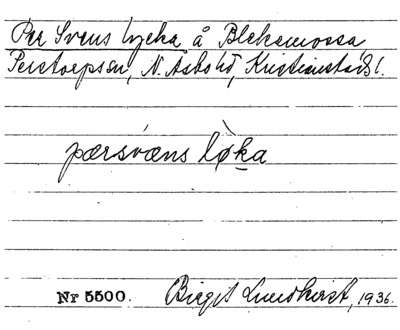 Per Svens lycka å Blekemossa
Perstorpssn, N. Åsbo hd, Kristianstads l.
pærsvæns lø̀ka
Nr 5500. Birgit Lundkvist, 1936.